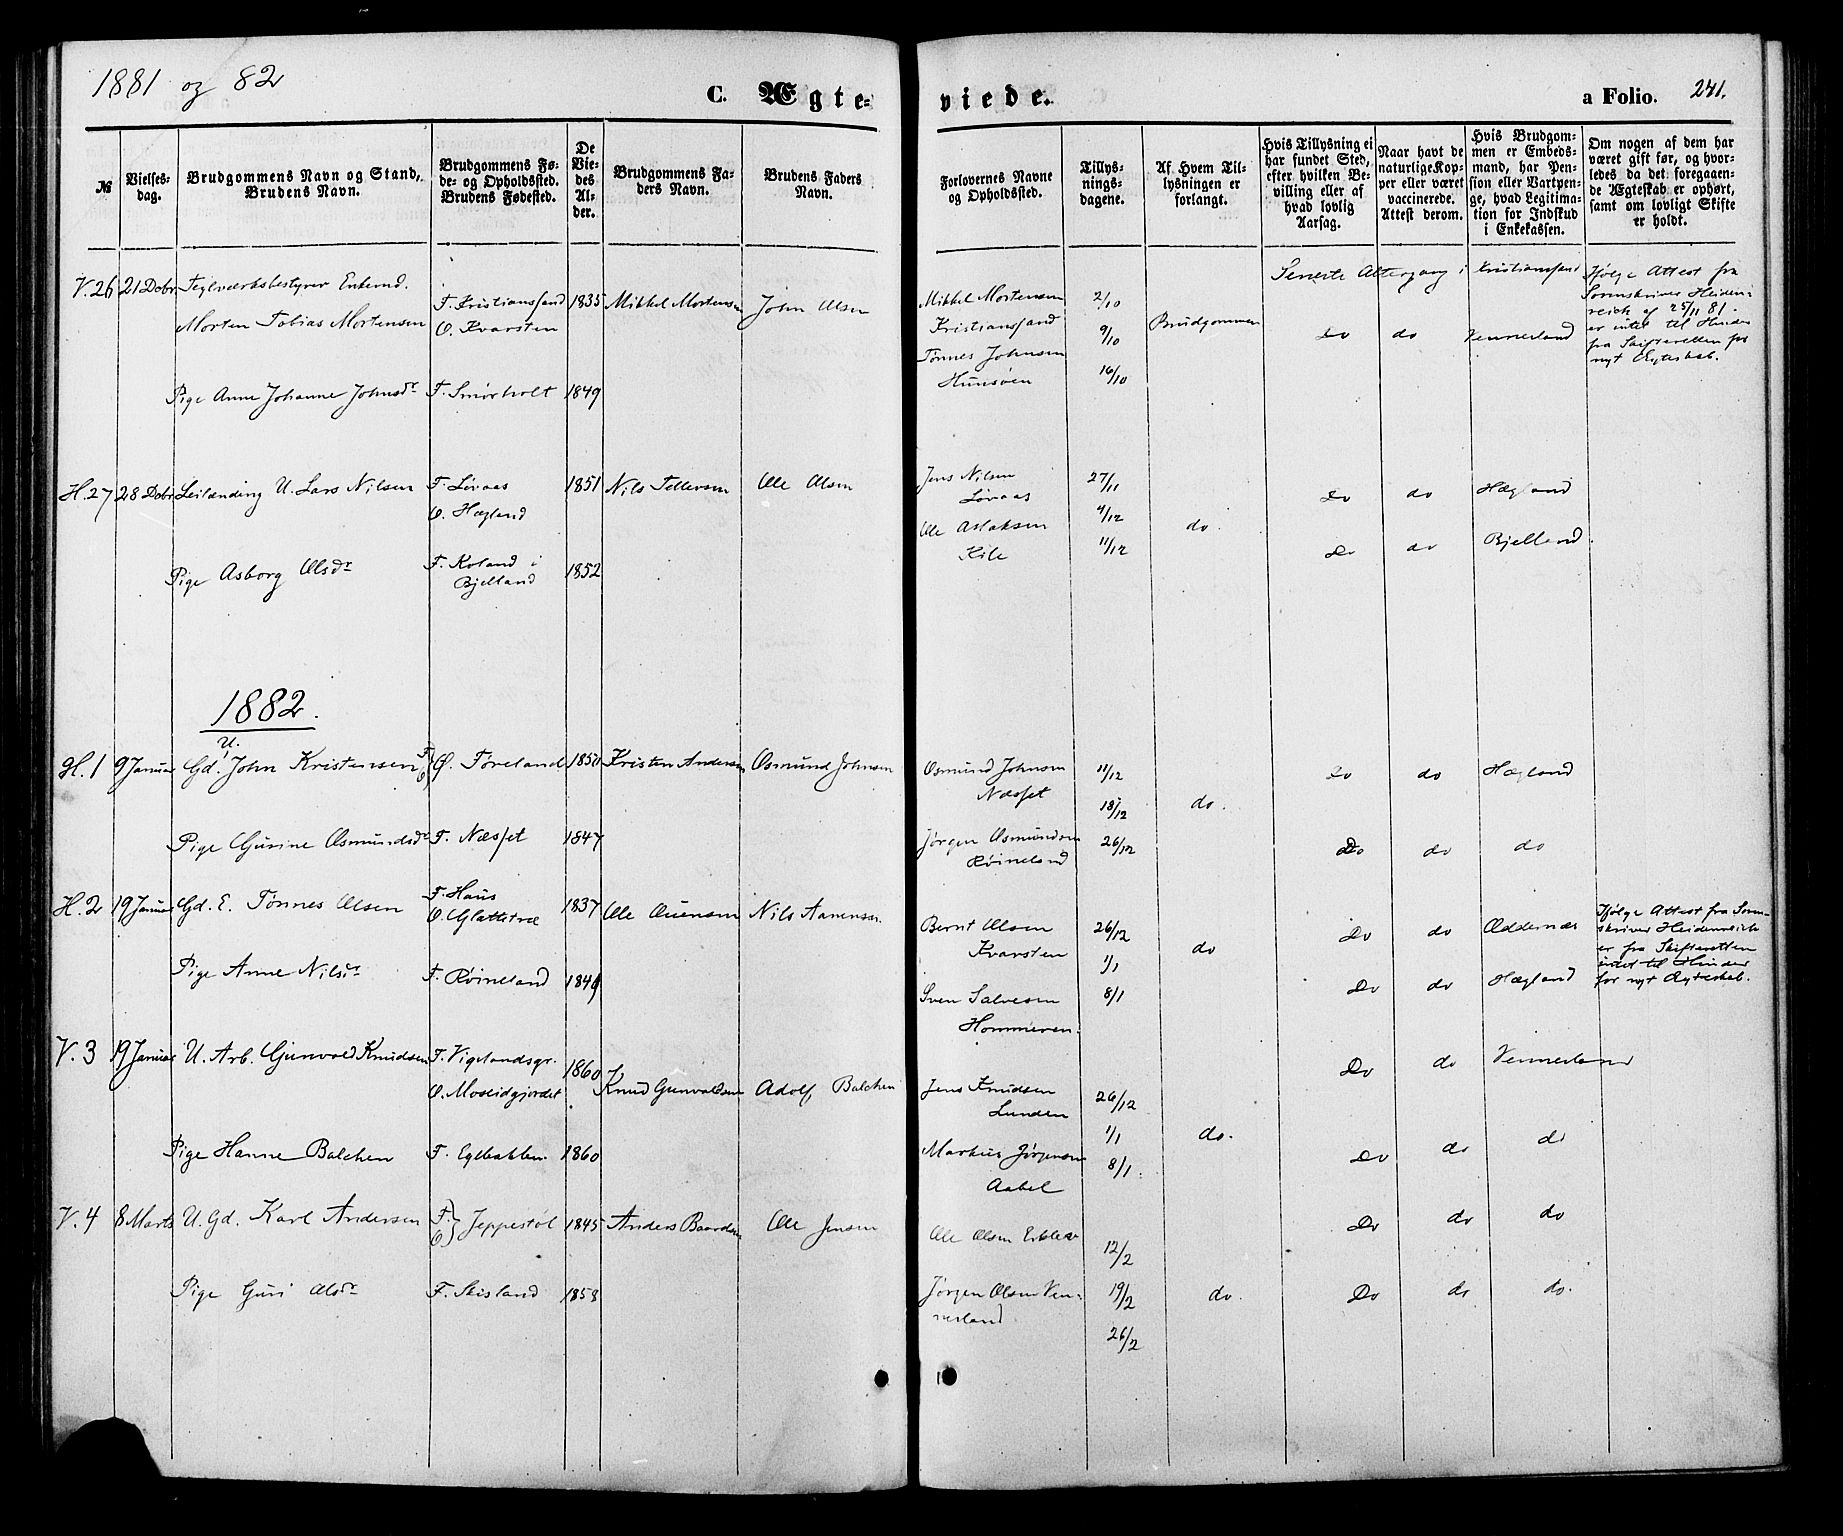 1881 og 82
C. Ægteviede. a Folio. 241.
№
Vielses-
dag.
Brudgommens Navn og Stand,
Brudens Navn.
Brudgommens Fø-
de- og Opholdssted.
Brudens Fødested.
De
Vie-
des
Al-
der.
Brudgommens Fa-
ders Navn.
Brudens Faders
Navn.
Forlovernes Navne
og Opholdssted.
Tillys-
nings-
dagene.
Af Hvem Til-
lysningen er
forlangt.
Hvis Tillysning ei
har fundet Sted,
efter hvilken Be-
villing eller af
hvad lovlig
Aarsag.
Naar havt de
naturlige Kop-
per eller været
vaccinerede.
Attest derom.
Hvis Brudgom-
men er Embeds-
mand, har Pen-
sion eller Vartpen-
ge, hvad Legitima-
tion for Indskud
i Enkekassen.
Om nogen af dem har
været gift før, og hvor-
ledes da det foregaaen-
de Ægteskab er ophørt,
samt om lovligt Skifte
er holdt.
V. 26 21 Dcbr Teglværksbestyrer Enkemd.
Morten Tobias Mortensen
F. Kristianssand
O. Kvarsten
1835 Mikkel Mortensen John Olsen
Mikkel Mortensen
Kristianssand
Tønnes Johnsen
Hunsøen
2/10
9/10
16/10
Brudgommen
Seneste Altergang i Kristianssand
Do do Vennesland
Ifølge Attest fra
Sorenskriver Heiden-
reich af 25/11 81
er intet til Hinder
fra Skifteretten for
nyt Ægteskab.
Pige Anne Johanne Johnsdr F. Smørholt 1849
H. 27 28 Dcbr Leilænding U. Lars Nilsen
F. Løvaas
O. Hægland
1851 Nils Tellevsen Ole Olsen
Jens Nilsen
Løvaas
Ole Aslaksen
Kile
27/11
4/12
11/12
do.
Do do Hægland
Do do Bjelland.
Pige Asborg Olsdr
F. Koland i
Bjelland
1852
1882.
H. 1 9 Januar Gd. U. John Kristensen F O } Ø. Føreland 1850 Kristen Andersen Osmund Johnsen
Osmund Johnsen
Næsset
Jørgen Osmundsen
Røineland
11/12
18/12
26/12
do.
Do do Hægland
Pige Gurine Osmundsdr F. Næsset 1847
Do do do
H. 2 19 Januar Gd. E. Tønnes Olsen
F. Haus
O. Glattetræ
1837 Ole Ouensen Nils Aanensen
Bernt Olsen
Kvarsten
Sven Salvesen
Hommeren.
26/12
1/1
8/1
do
Do do Oddernæs
Ifølge Attest fra Soren-
skriver Heidenreich
er fra Skifteretten
intet til Hinder
for nyt Ægteskab.
Pige Anne Nilsdr F. Røineland 1849
Do do Hægland
V. 3 19 Januar U. Arb. Gunvald Knudsen
F. Vigelandsgr.
O. Moseidgjordet
1860 Knud Gunvaldsen Adolf Balchen
Jens Knudsen
Lunden
Markus Jørgensen
Aabel
26/12
1/1
8/1
do.
Do do Vennesland
Pige Hanne Balchen F. Egebakken 1860
Do do do
V. 4 8 Marts U. Gd. Karl Andersen F. O } Jeppestøl 1845 Anders Baardsen Ole Jensen
Ole Olsen
Jørgen Olsen Ven-
nesland
12/2
19/2
26/2
do.
Do do do
Pige Guri Olsdr F. Skisland 1858
Do do do.